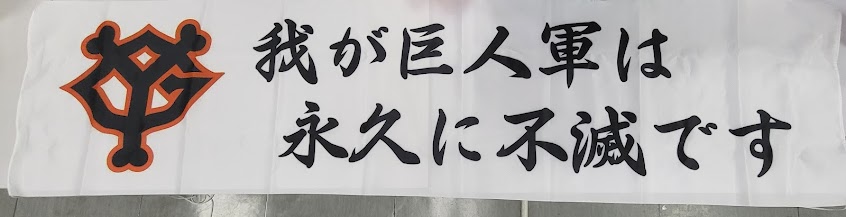 我が巨人軍は
永久に不滅です